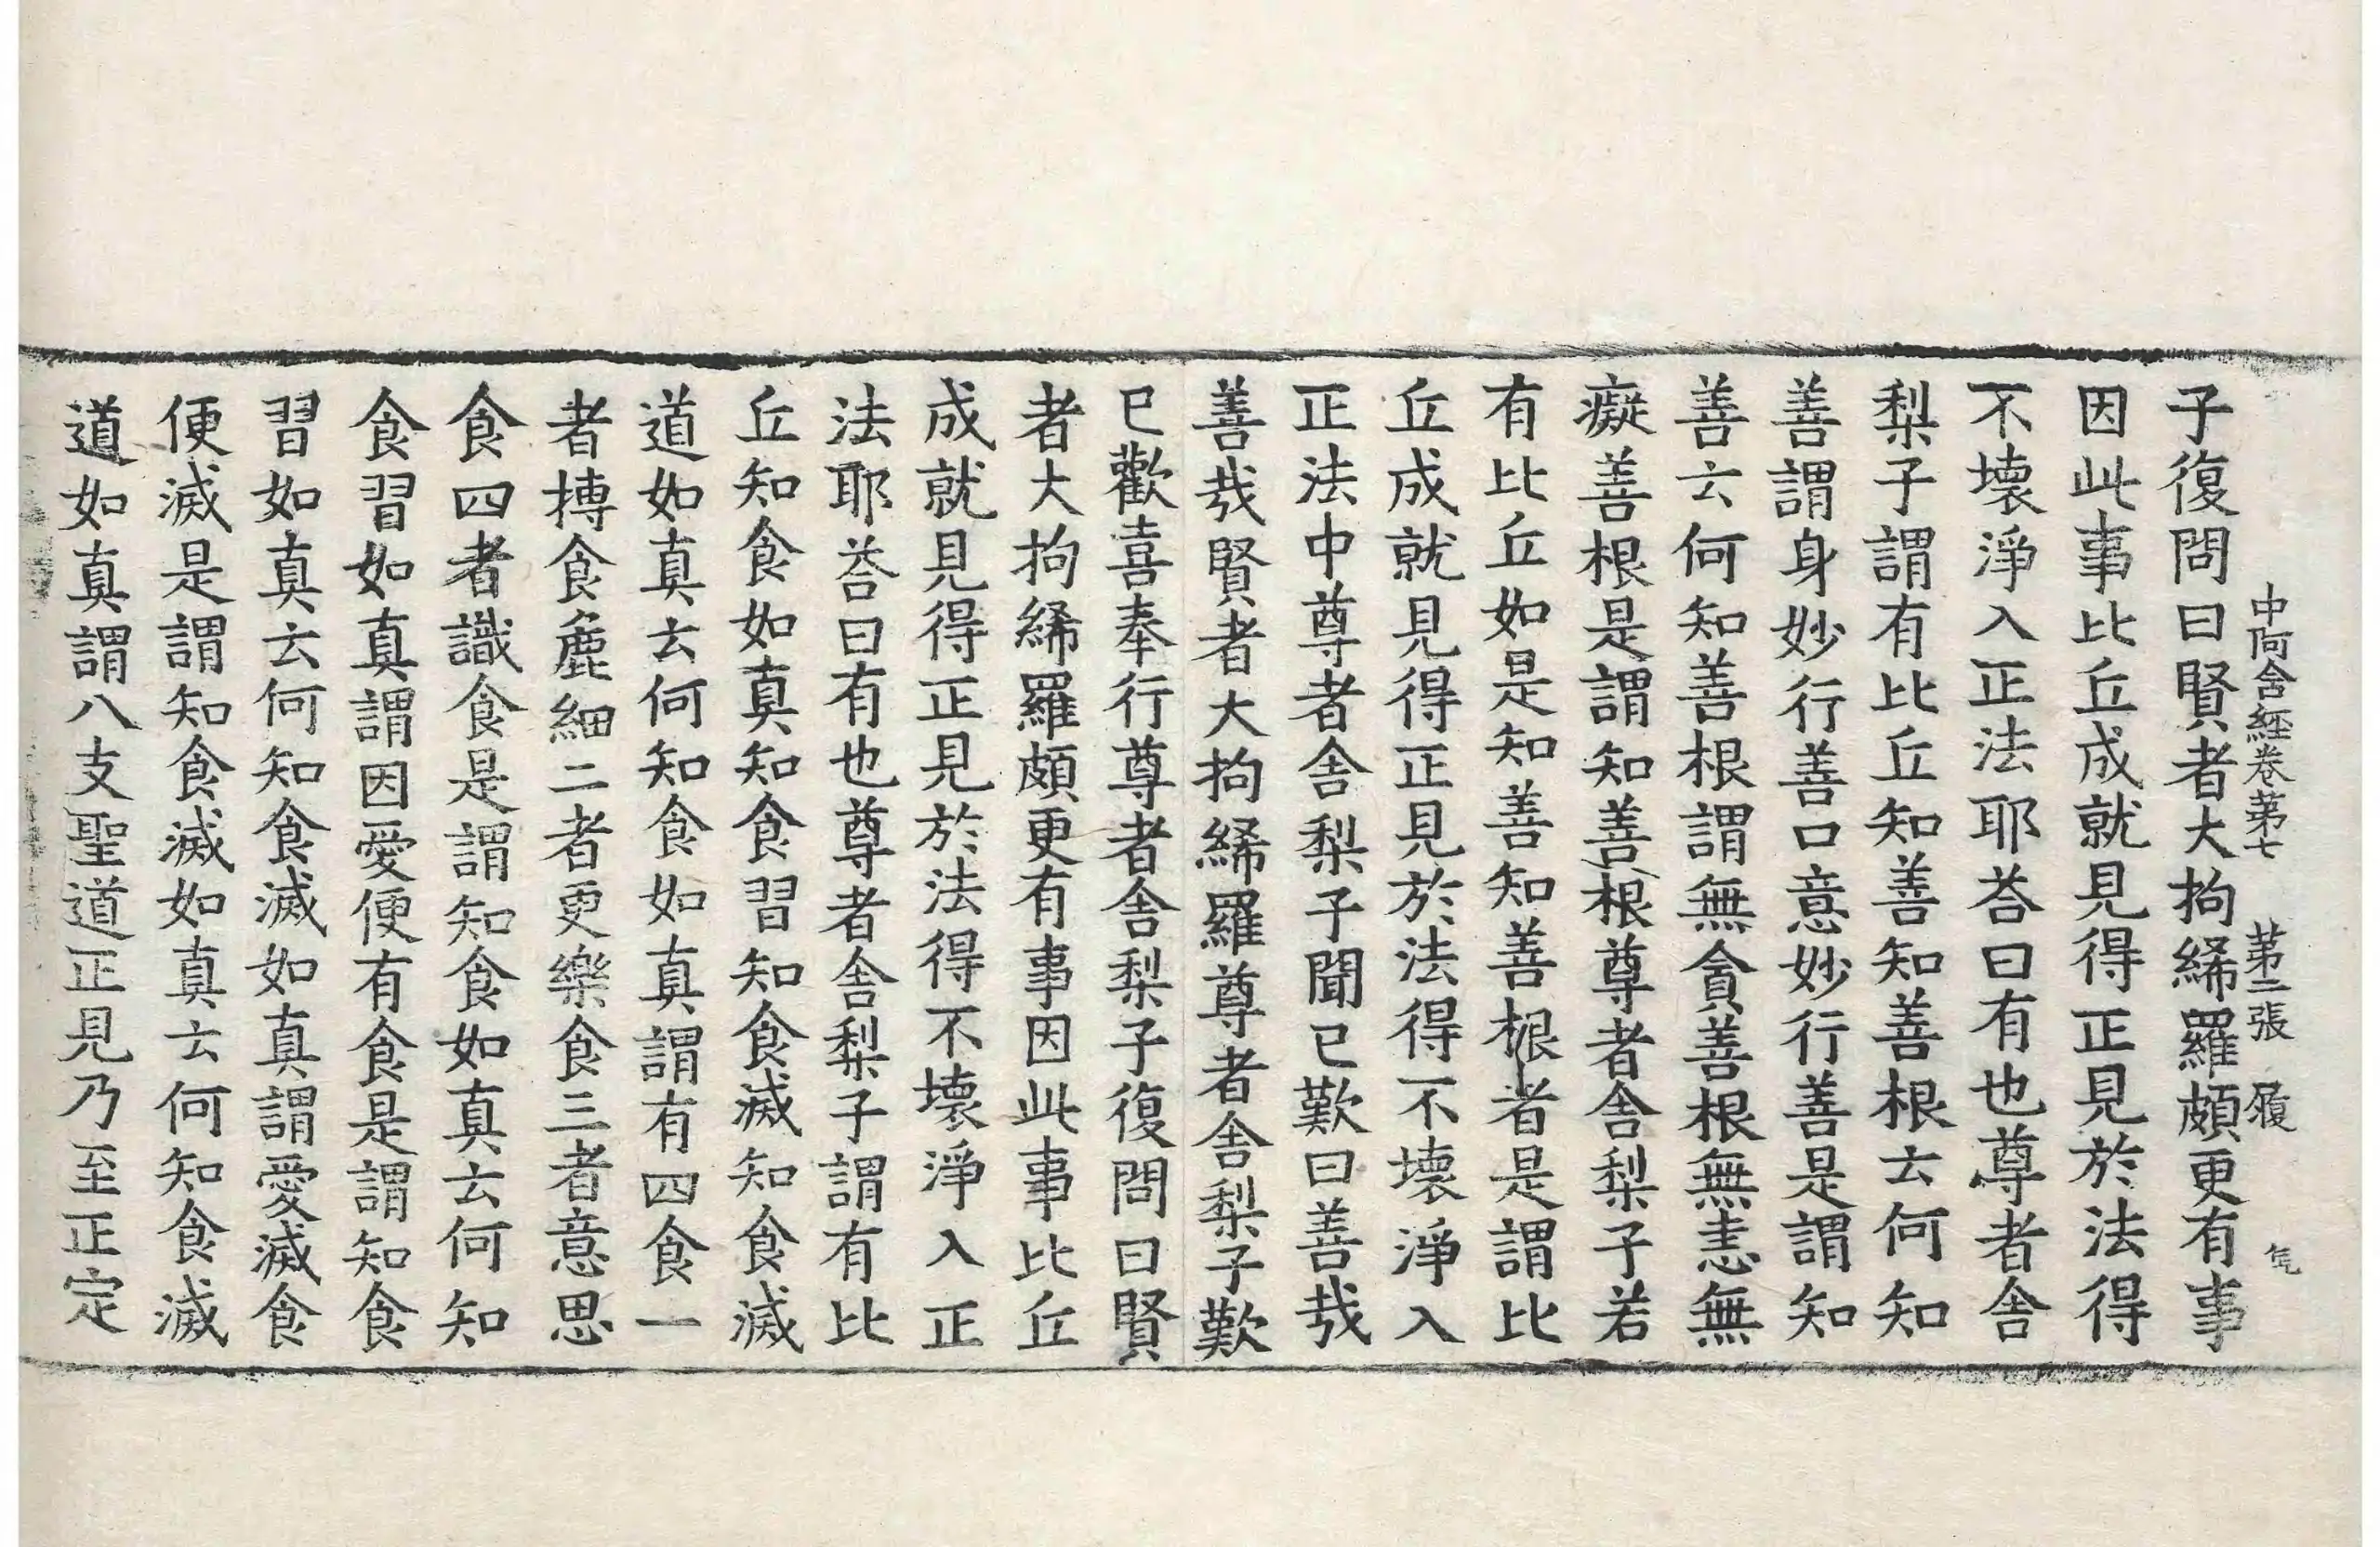 中阿含經卷第七　第二張　履
子復問曰賢者大拘絺羅頗更有事
因此事比丘成就見得正見於法得
不壞淨入正法耶荅曰有也尊者舍
梨子謂有比丘知善知善根云何知
善謂身妙行善口意妙行善是謂知
善云何知善根謂無貪善根無恚無
癡善根是謂知善根尊者舍梨子若
有比丘如是知善知善根者是謂比
丘成就見得正見於法得不壞淨入
正法中尊者舍梨子聞已歎曰善哉
善哉賢者大拘絺羅尊者舍梨子歎
已歡喜奉行尊者舍梨子復問曰賢
者大拘絺羅頗更有事因此事比丘
成就見得正見於法得不壞淨入正
法耶荅曰有也尊者舍梨子謂有比
丘知食如真知食習知食滅知食滅
道如真云何知食如真謂有四食一
者摶食麁細二者更樂食三者意思
食四者識食是謂知食如真云何知
食習如真謂因愛便有食是謂知食
習如真云何知食滅如真謂愛滅食
便滅是謂知食滅如真云何知食滅
道如真謂八支聖道正見乃至正定